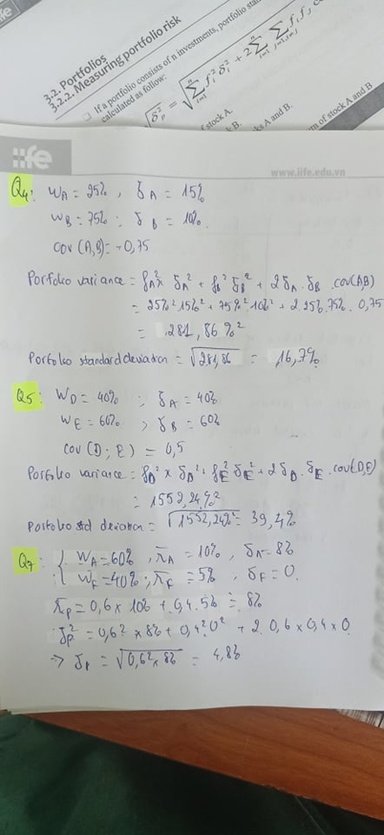 3.2. Portfolios
3.2.2. Measuring portfolio risk
If a portfolio consists of n investments, portfolio sta
calculated as follow:
f stock A.
k B.
ks A and B.
rn of stock A and B
iife
www.iife.edu.vn
Q4: WA = 25% , δA = 15%
WB = 75% ; δB = 10%.
cov (A,B) = +0,75
Porfolio variance = fA² x δA² + fB² δB² + 2 δA . δB . cov(AB)
= 25%² 15%² + 75%² 10%² + 2. 25%. 75%. 0,75
= 281,86 %²
Porfolio standard deviation = √281,86 = 16,7%
Q5: WD = 40% ; δA = 40%
WE = 60% ; δB = 60%
cov (D; E) = 0,5
Porfolio variance = fD² x δD² + fE² δE² + 2 δD . δE . cov(D,E)
= 1552,24 %²
Porfolio std deviation = √1552,24%² = 39,4%
Q7: { WA = 60% , r̄A = 10% , δA = 8%
WF = 40% ; r̄F = 5% , δF = 0.
r̄p = 0,6 x 10% + 0,4. 5% = 8%
δp² = 0,6² x 8% + 0,4² 0² + 2. 0,6 x 0,4 x 0
⇒ δp = √0,6² x 8% = 4,8%